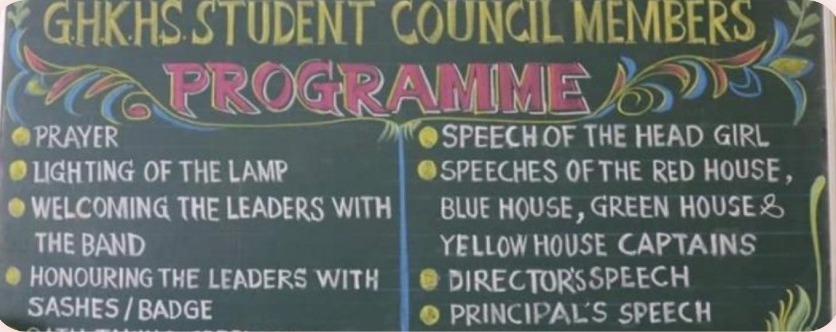 G.H.K.H.S. STUDENT COUNCIL MEMBERS
PROGRAMME
PRAYER
LIGHTING OF THE LAMP
WELCOMING THE LEADERS WITH
THE BAND
HONOURING THE LEADERS WITH
SASHES / BADGE
SPEECH OF THE HEAD GIRL
SPEECHES OF THE RED HOUSE,
BLUE HOUSE, GREEN HOUSE &
YELLOW HOUSE CAPTAINS
DIRECTOR'S SPEECH
PRINCIPAL'S SPEECH